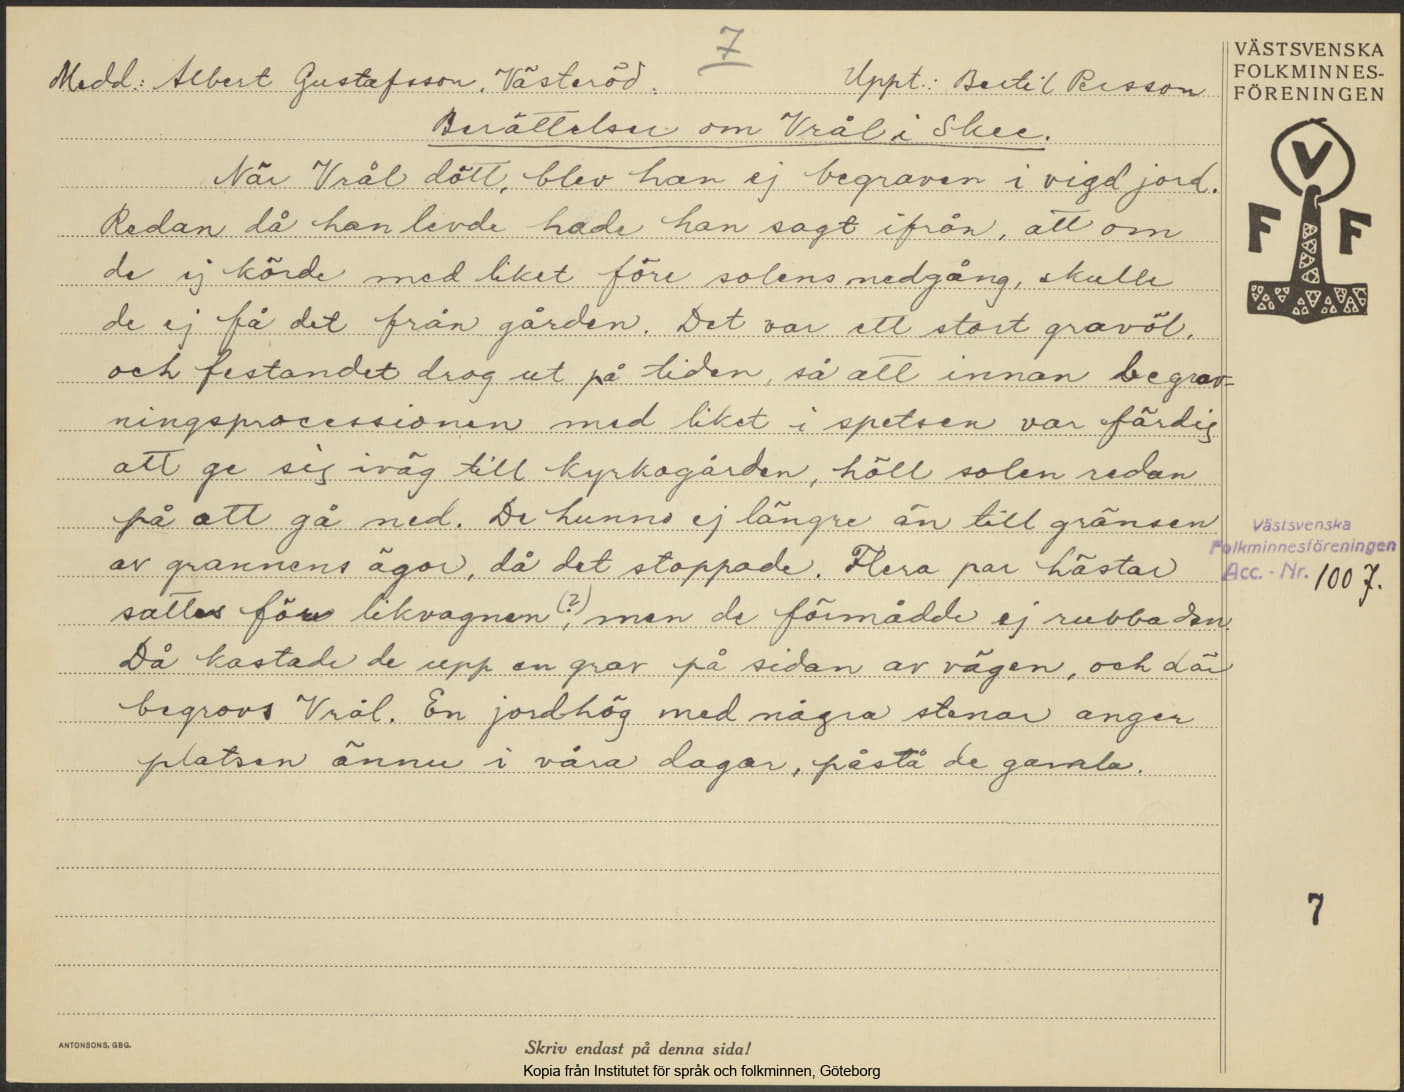 7
Medd.: Albert Gustafsson, Västeröd.
Uppt.: Bertil Persson
Berättelser om Vrål i Skee.
När Vrål dött, blev han ej begraven i vigd jord.
Redan då han levde hade han sagt ifrån, att om
de ej körde med liket före solens nedgång, skulle
de ej få det från gården. Det var ett stort gravöl,
och festandet drog ut på tiden, så att innan begrav-
ningsprocessionen med liket i spetsen var färdig
att ge sig iväg till kyrkogården, höll solen redan
på att gå ned. De hunno ej längre än till gränsen
av grannens ägor, då det stoppade. Flera par hästar
sattes före likvagnen (?), men de förmådde ej rubba den.
Då kastade de upp en grav på sidan av vägen, och där
begrovs Vrål. En jordhög med några stenar anger
platsen ännu i våra dagar, påstå de gamla.
VÄSTSVENSKA
FOLKMINNES-
FÖRENINGEN
V
F F
Västsvenska
Folkminnesföreningen
Acc. - Nr. 1007.
7
ANTONSONS, GBG.
Skriv endast på denna sida!
Kopia från Institutet för språk och folkminnen, Göteborg